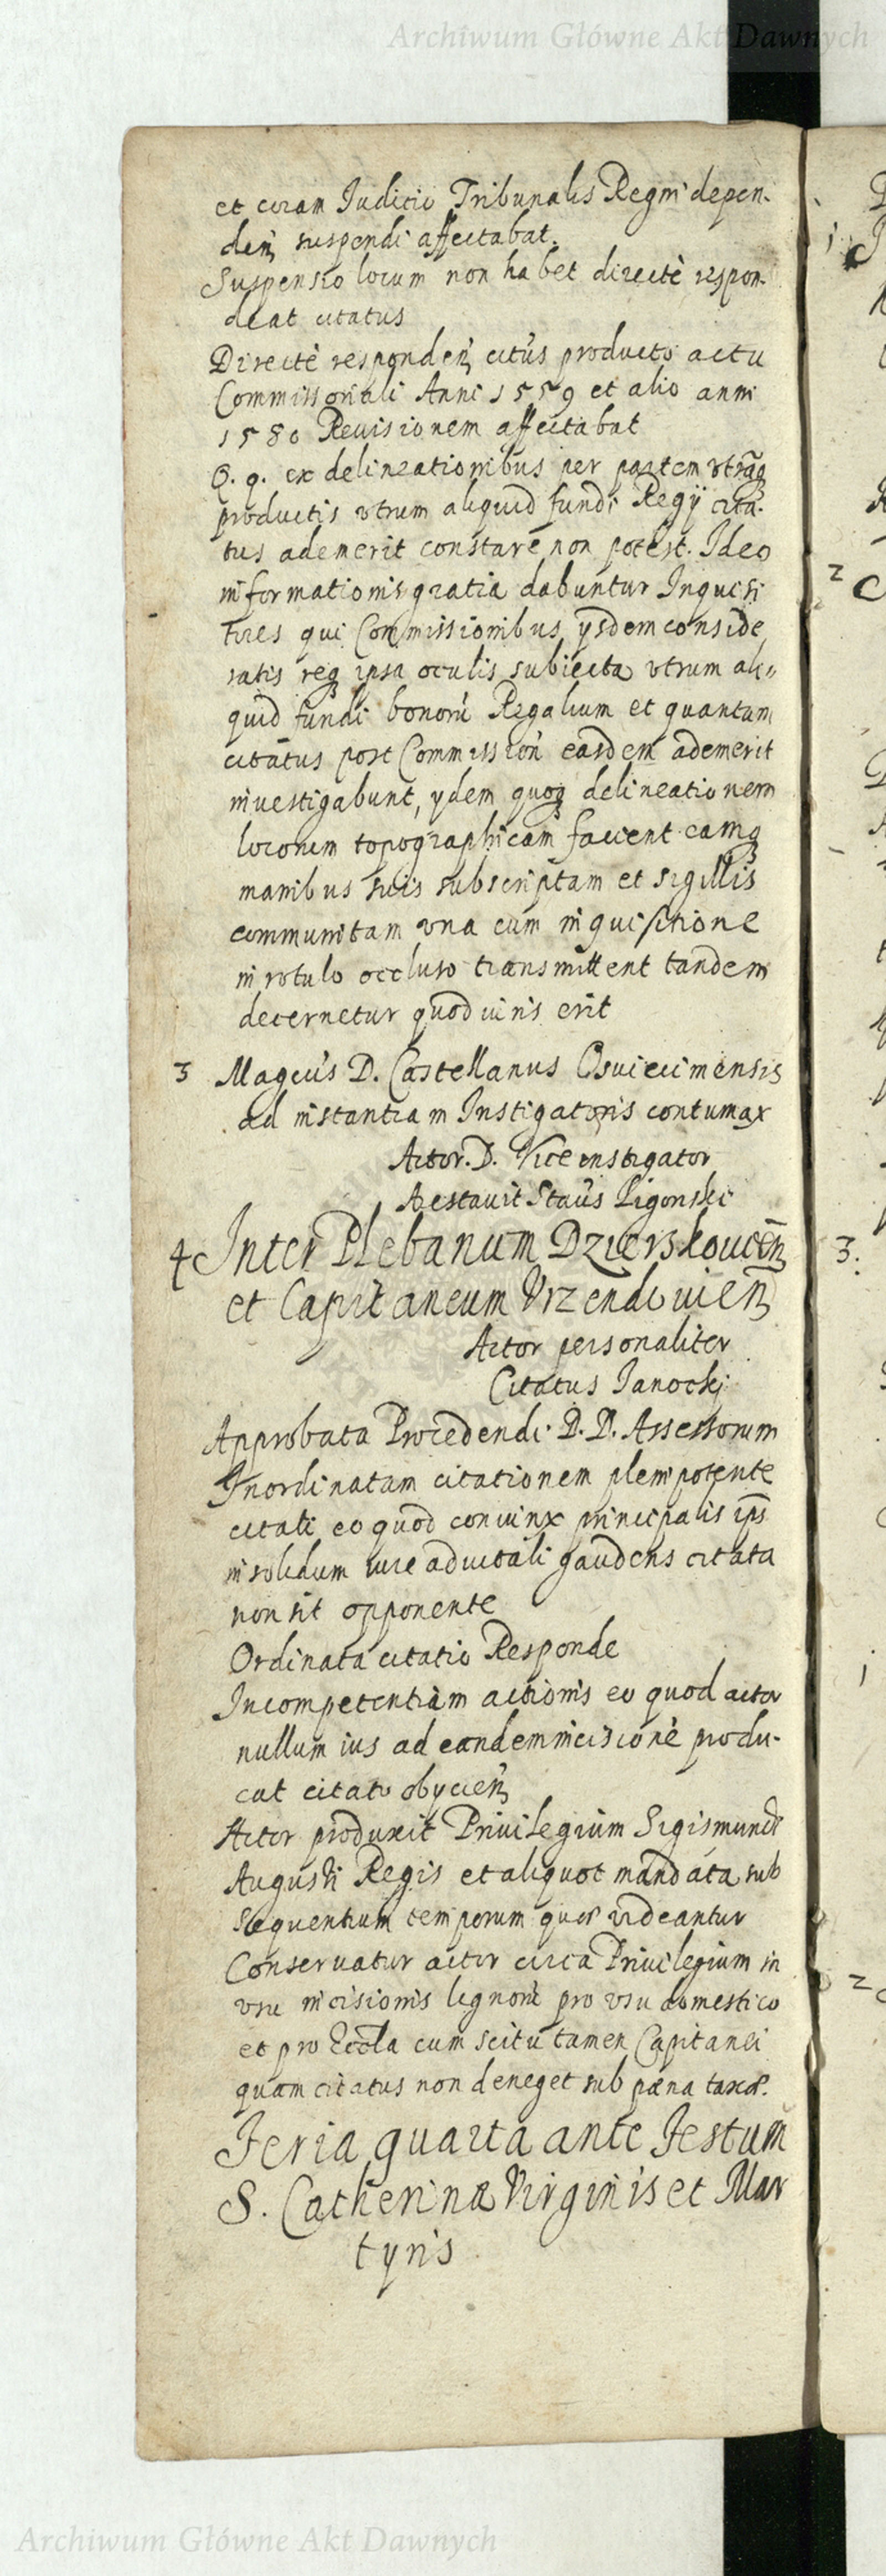 Archiwum Główne Akt Dawnych
et coram Iuditio Tribunalis Regni depen-
den suspendi affectabat.
Suspensio locum non habet directè respon-
deat citatus
Directè responden citus producto actu
Commissoriali Anni 1559 et alio anni
1580 Reuisionem affectabat
Q. q. ex delineationibus per partem vtramq
productis vtrum aliquid fundi Regij cita-
tus ademerit constare non potest. Ideo
informationis gratia dabuntur Inquisi
tores qui Commissionibus ysdem conside
ratis req ipsa oculis subiecta vtrum ali"
quid fundi bonorū Regalium et quantum
citatus post Commission easdem ademerit
inuestigabunt, ydem quoq delineationem
locorum topographicam facient eamq
manibus suis subscriptam et sigillis
communitam vna cum inquisitione
in rotulo occluso transmittent tandem
decernetur quod iuris erit
3 Magcus D. Castellanus Osuiecimensis
ad instantiam Instigatoris contumax
Actor. D. Vice instigator
Aestauit Staus Ligonski
4 Inter Plebanum Dzierskouicen
et Capitaneum Vrzendouien
Actor personaliter
Citatus Ianockj
Approbata Procedendi D. D. Assessorum
Inordinatam citationem plenipotente
citati eo quod coniunx principalis ips
in solidum iure aduitali gaudens citata
non sit opponente
Ordinata citatio Responde
Incompetentiam actionis eo quod actor
nullum ius ad eandem incisionē produ-
cat citato obycien
Actor produxit Priuilegium Sigismundi
Augusti Regis et aliquot mandata sub
sequentium temporum quor videantur
Conseruatur actor circa Priuilegium in
vsu incisionis lignorū pro vsu domestico
et pro Eccla cum scitu tamen Capitanei
quam citatus non deneget sub pæna taxæ.
Feria quarta ante Festum
S. Catherinæ Virginis et Mar
tyris
Archiwum Główne Akt Dawnych